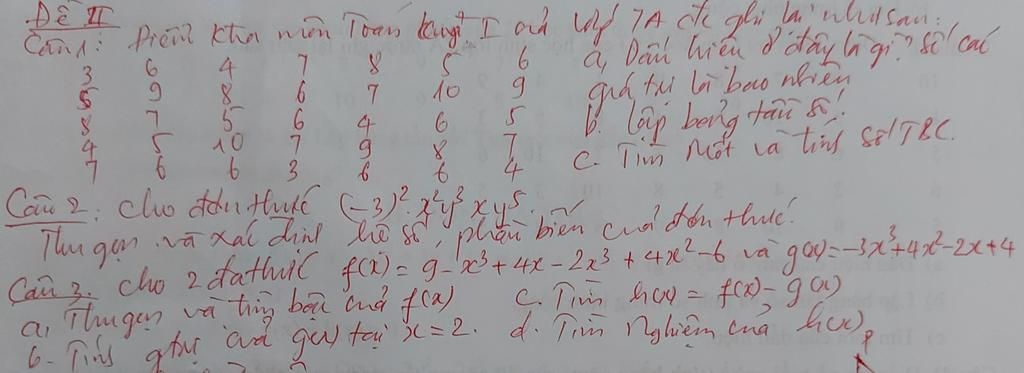 Đề II
Câu 1: Điểm ktra môn Toán kuỳ I của lớp 7A đc ghi lại như sau:
3 6 4 7 8 5 6 a, Dấu hiệu ở đây là gì? số các
5 9 8 6 7 10 9 giá trị là bao nhiêu
8 7 5 6 4 6 5 b. lập bảng tần số.
4 5 10 7 9 8 7 c. Tìm Mốt và tính số TBC.
7 6 6 3 6 6 4
Câu 2: cho đơn thức (-3)² x²y³ xy⁵.
Thu gọn và xác định hệ số, phần biến của đơn thức.
Câu 3. cho 2 đa thức f(x) = 9 - x³ + 4x - 2x³ + 4x² - 6 và g(x) = -3x³ + 4x² - 2x + 4
a, Thu gọn và tìm bậc của f(x) c. Tìm h(x) = f(x) - g(x)
b. Tính gtrị của g(x) tại x = 2. d. Tìm Nghiệm của h(x)